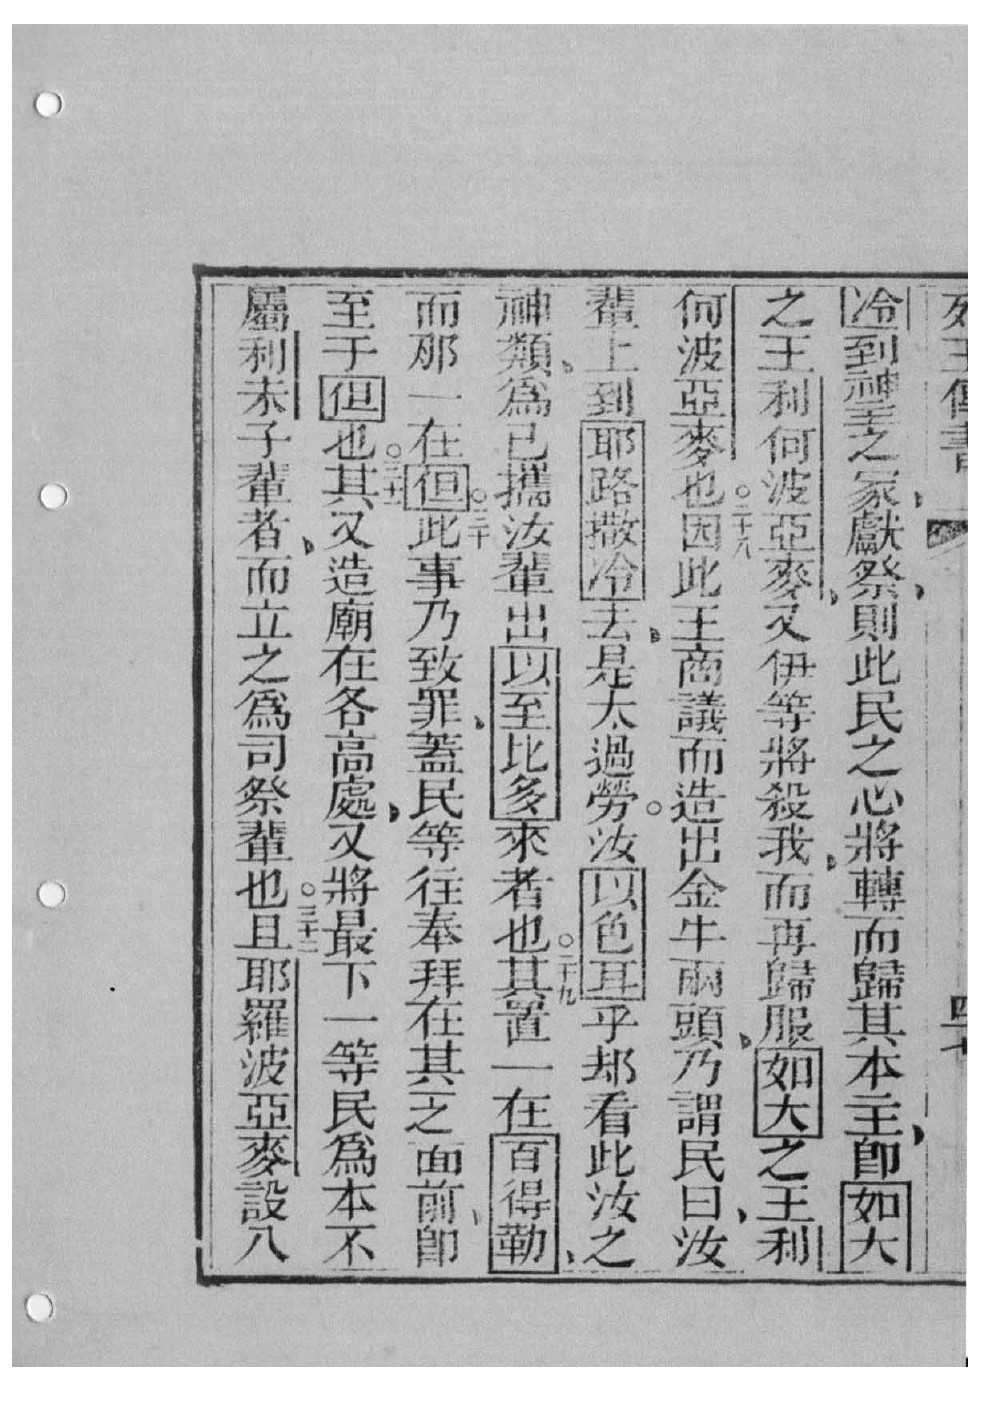 列王傳書 四十
冷到神主之家、獻祭、則此民之心將轉而歸其本主、即如大
之王利何波亞麥、又伊等將殺我、而再歸服如大之王利
何波亞麥也○二十八因此王商議而造出金牛兩頭、乃謂民曰、汝
輩上到耶路撒冷去、是太過勞○汝以色耳乎却看此汝之
神類、為已攜汝輩出以至比多來者也○二十九其置一在百得勒、
而那一在但○三十此事乃致罪、蓋民等往奉拜在其一之面前、即
至于但也○三十一其又造廟在各高處、又將最下一等民為本不
屬利未子輩者、而立之為司祭輩也○三十二且耶羅波亞麥設八